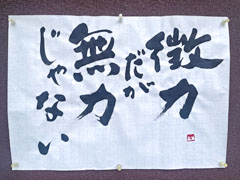 微力
だが
無力
じゃない